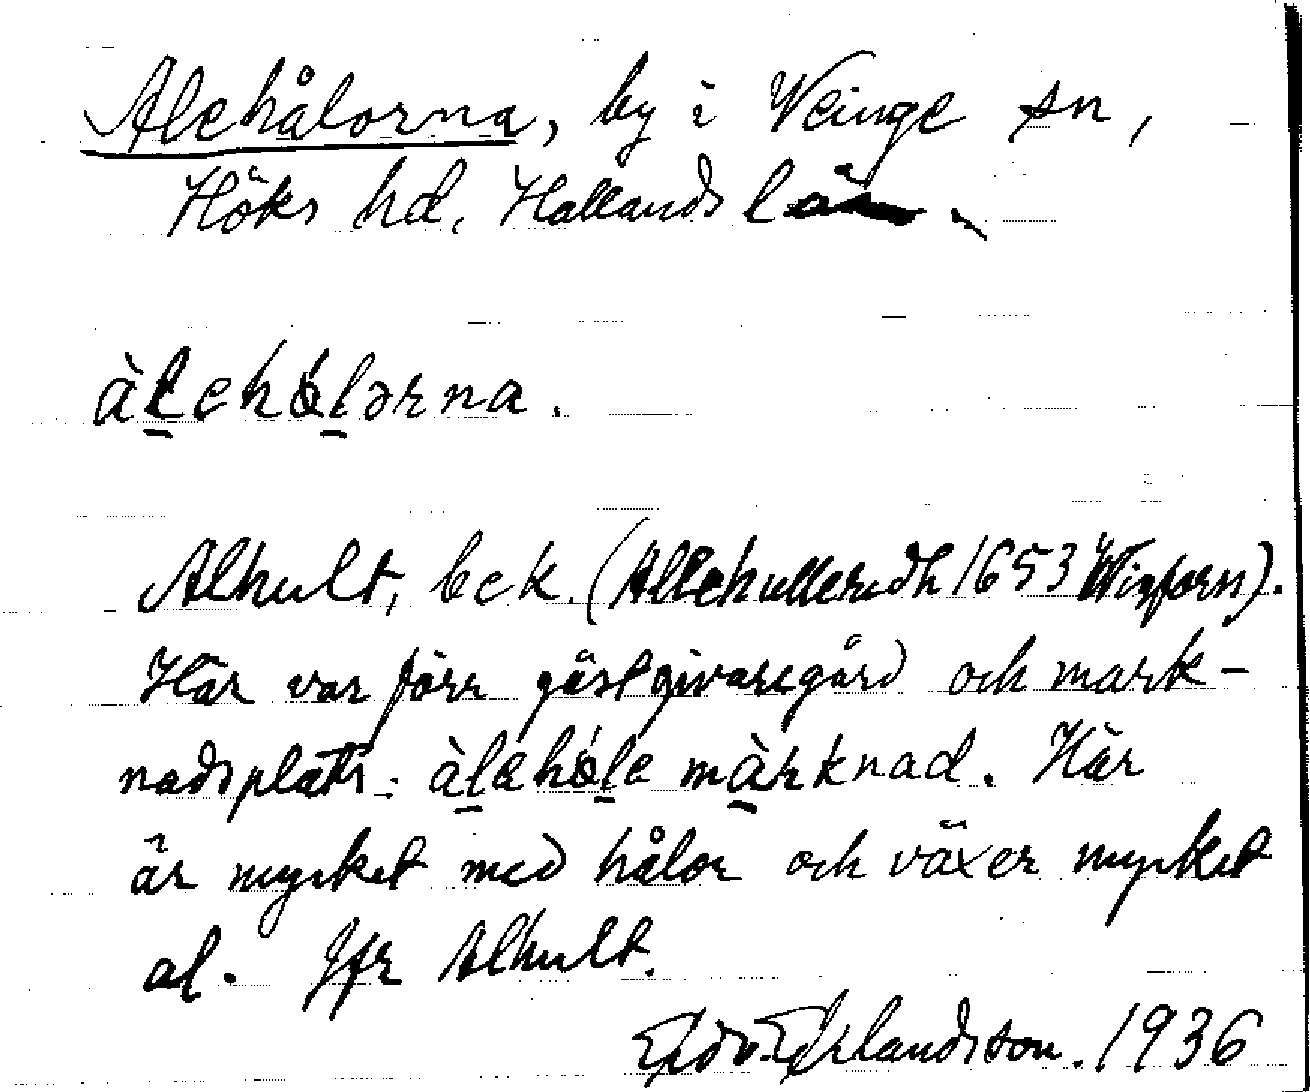 Alehålorna, by i Veinge sn,
Höks hd, Hallands län.
àlehólorna.
Alhult, bek. (Allehulleredh 1653 Wigforss).
Här var förr gästgivaregård och mark-
nadsplats: àlehóle màrknad. Här
är mycket med hålor och växer mycket
al. Jfr Alhult.
Edv. Erlandsson. 1936